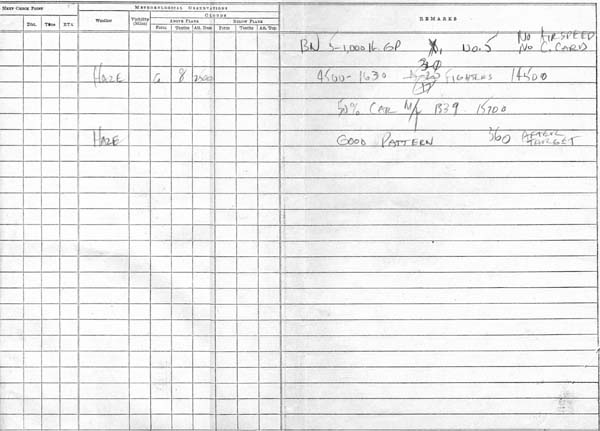 NEXT CHECK POINT
METEOROLOGICAL OBSERVATIONS
CLOUDS
Weather Visibility (Miles) ABOVE PLANE BELOW PLANE REMARKS
Dist. Time ETA Form Tenths Alt. Base Form Tenths Alt. Top
BN 5-1,000 lb. GP No. 5 NO AIRSPEED
NO C. CARD
HAZE 6 8 4500-1630 FIGHTERS 14500
50% CAR B39 15700
HAZE GOOD PATTERN 360 AFTER TARGET